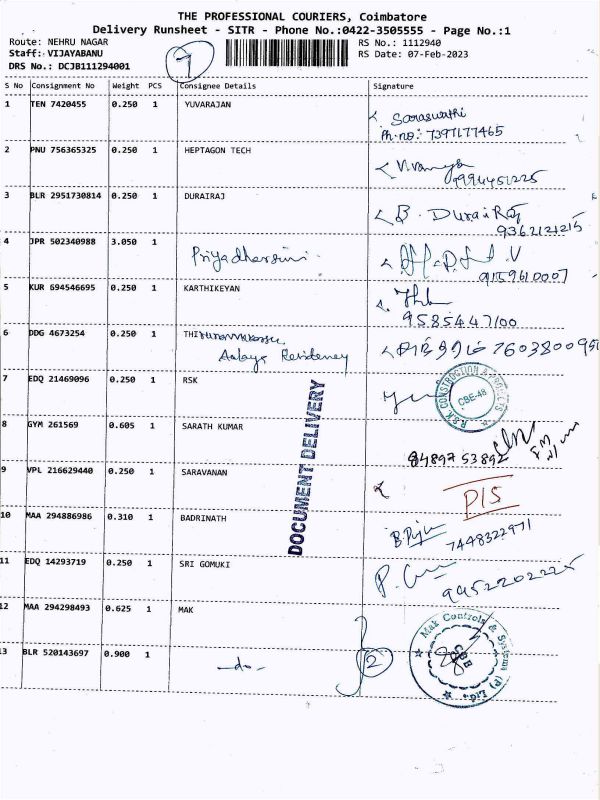 THE PROFESSIONAL COURIERS, Coimbatore
Delivery Runsheet - SITR - Phone No.:0422-3505555 - Page No.:1
Route: NEHRU NAGAR RS No.: 1112940
Staff: VIJAYABANU RS Date: 07-Feb-2023
DRS No.: DCJB111294001
S No Consignment No Weight PCS Consignee Details Signature
1 TEN 7420455 0.250 1 YUVARAJAN
Saraswathi
Ph.no: 7397177465
2 PNU 756365325 0.250 1 HEPTAGON TECH
9994451225
3 BLR 2951730814 0.250 1 DURAIRAJ
B. DuraiRaj
9362121215
4 JPR 502340988 3.050 1 Priyadharsini
9159610007
5 KUR 694546695 0.250 1 KARTHIKEYAN
9585447100
6 DDG 4673254 0.250 1
Residency
7 EDQ 21469096 0.250 1 RSK
R.S.K. CONSTRUCTION & PROJECTS
CBE-48
8 GYM 261569 0.605 1 SARATH KUMAR
84897 53892
9 VPL 216629440 0.250 1 SARAVANAN
DIS
10 MAA 294886986 0.310 1 BADRINATH
7448322971
11 EDQ 14293719 0.250 1 SRI GOMUKI
9952202225
12 MAA 294298493 0.625 1 MAK
13 BLR 520143697 0.900 1 -do- 2
Mak Controls & Systems (P) Ltd.
CBE
DOCUMENT DELIVERY